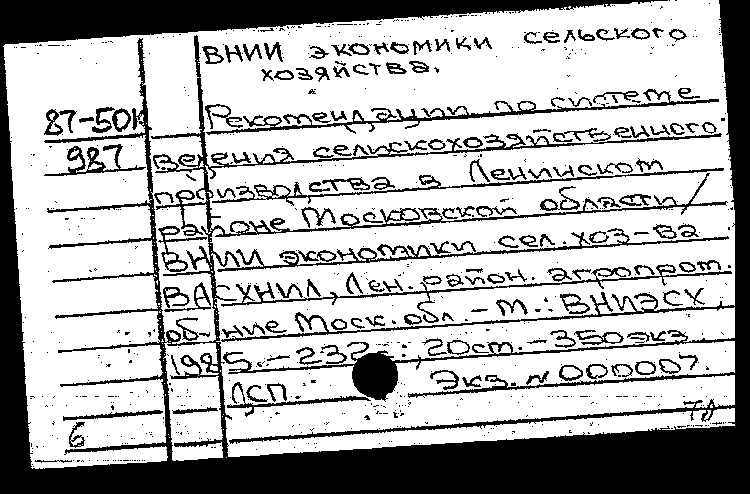 ВНИИ экономики сельского
хозяйства.
87-50к Рекомендации по системе
987 ведения сельскохозяйственного
производства в Ленинском
районе Московской области/
ВНИИ экономики сел.хоз-ва
ВАСХНИЛ, Лен. район. агропром.
об-ние Моск. обл. - М.: ВНИЭСХ,
1985. - 232с.; 20см. - 350экз.
ДСП. Экз. № 000007.
6